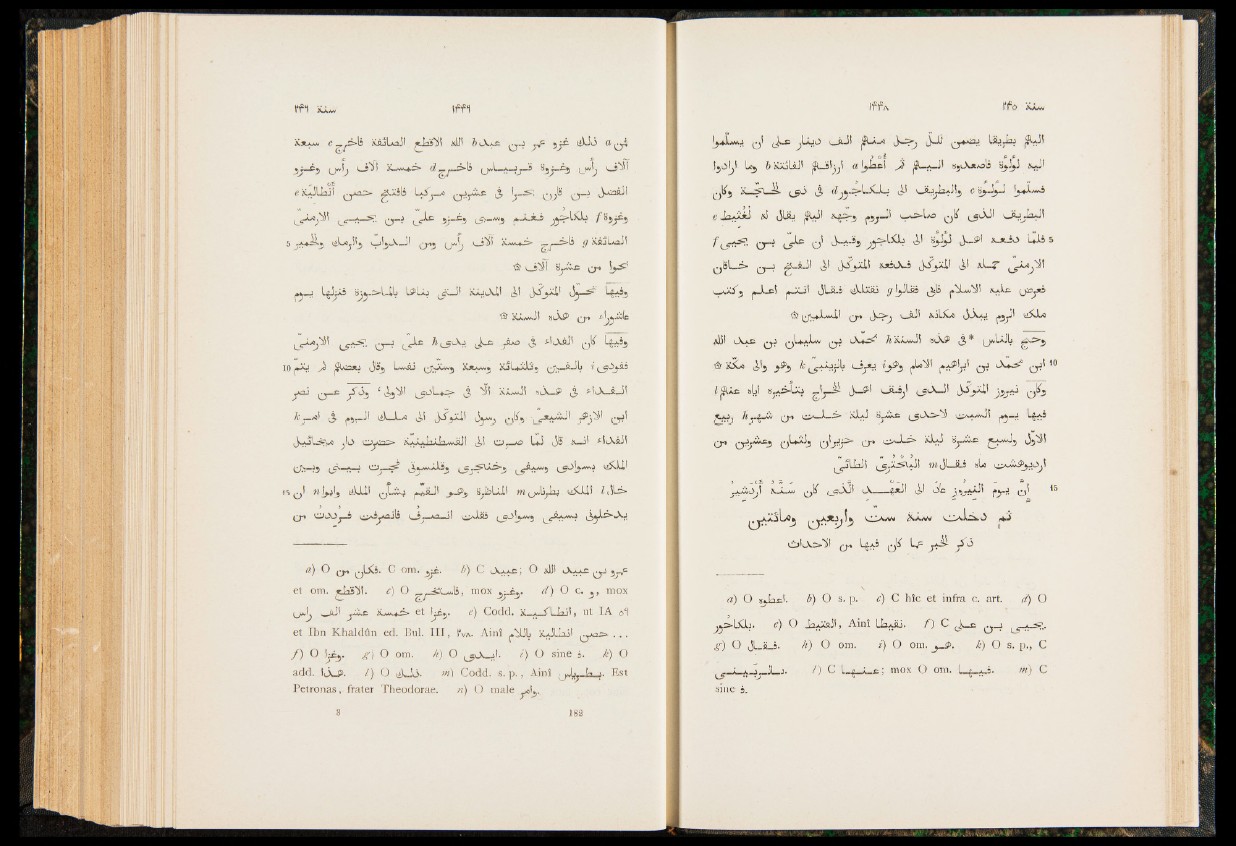 ١٤٤٨ سنة ٢٤٥
اليهم بطريقا يضمن لكلّ رجل منهم الف دينار على ان يسلّموا
اليه لُؤْلُؤة فاصعدوه اليهم ثم أُعْطوا a ارزاقهم الفائتة b وما ارادوا
فسلّموا لؤلؤة c والبطريق الى بلكاجور d في ذى الحجّة وكان
البطريق الذى كان صاحب الروم وجّهه اليهم يقال له لُغُثيط e
5 فلمّا دفعه اهل لؤلؤة الى بلكاجور وقيل ان علىّ بن يحيى f
الارمنىّ حمله الى المتوكّل فدفعه المتوكّل الى الفتح بن خاقان
فعرض عليه الاسلام فأبى فقالوا g نقتلك فقال انتم اعلم وكتب
ملك الروم يبذل مكانه الف رجل من المسلمين ۞
وحجّ بالناس * في هذه السنة h محمّد بن سليمان بن عبد الله
10 ابن محمّد بن ابراهيم الامام وهو i يعرف بالزينبىّ k وهو والى مكّة ۞
وكان نيروز المتوكّل الذى ارفق اهل الخراج بتأخيره اياه عنهم l
فيها يوم السبت لاحدى عشرة ليلة خلت من شهر h ربيع
الاوّل ولسبع عشرة ليلة خلت من حزيران ولثمان وعشرين من
ارديوهشت ماه فقال m البُحْتُرىّ الطائىّ
15 إنّ يومَ النَيْرُوزِ عادَ الى العَهْدِ الَّذى كان سَنَّهُ أَرْدَشيرُ
ثم دخلت سنة ستّ واربعين ومائتين
ذكر الخبر عما كان فيها من الاحداث
a) O اعطوه. b) O s. p. c) C hic et infra c. art. d) O
بلكاجور. e) O , Ainî . f) C على بن يحيى.
g) O فقال. h) O om. i) O om. هو. k) O s. p., C
. l) C عنها; mox O om. فيها. m) C
sine ف.
سنة ٢٤٦ ١٤٤٩
فمن a ذلك غزو عمر بن عبد b الله الاقطع الصائفة فاخرج c سبعة
آلاف رأس وغزوة قريباس فاخرج d خمسة آلاف رأس وغزو
الفضل بن قارن بحرا في عشرين مركبا فافتتح حصن أَنْطالية e
وغزوة f بلكاجور فغنم وسبى وغزو علىّ بن يحيى الارمنىّ
5 الصائفة g فاخرج خمسة آلاف رأس ومن الدوابّ والرمك والحمير
نحوا من عشرة آلاف ۞
وفيها تحوّل المتوكّل الى المدينة التى بناها بالماحوزة فنزلها يوم
عاشوراء من هذه السنة ۞
وفيها كان الفداء في صفر على يدى h علىّ بن يحيى الارمنىّ
10 ففودى i بالفين وثلثمائة وسبعة وستّين نفسا وقال بعضهم لم يتمّ
الفداء في هذه السنة الّا في جمادى الاولى، وذكر عن نصر
ابن الازهر الشيعىّ وكان رسول المتوكّل الى ملك الروم في امر k
الفداء انه قال لمّا صرت الى القسطنطينيّة حضرت دار ميخائيل
الملك بسوادى وسيفى وخنجرى وقلنسوتى فجرت بينى وبين
15 خال l الملك بطرناس m المناظرة وهو القيّم بشأن الملك وابوا n ان
يدخلونى بسيفى وسوادى فقلت انصرف فانصرفت فرددت من
a) O فكان من. C om. غزو. b) C عبيد; O عمرو بن عبيد الله
et om. الاقطع. c) O , mox وغزو. d) O c. و, mox
خمسة عشر الف راس et وغزا. e) Codd. انطاكية, ut IA ٥٩
et Ibn Khaldûn ed. Bul. III, ٢٧٨. Ainî حصن انطالية باللام ...
f) O وغزا. g) O om. h) O ايدى. i) O sine ف. k) O
add. هذا. l) O ذلك. m) Codd. s. p., Ainî . Est
Petronas, frater Theodorae. n) O male وامر.
3 188